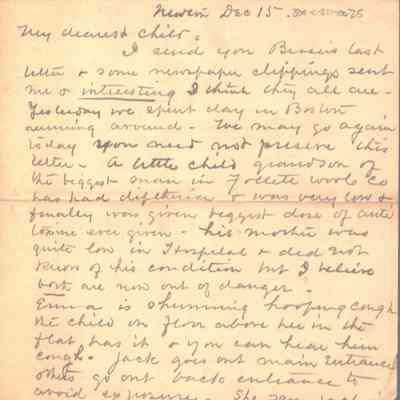 Newton Dec 15
My dearest Child,
I send you last
letter & some newspaper clippings sent
me & interesting I think they all are -
Yesterday we spent day in Boston
running around - We may go again
today you need not preserve this
letter - A little child grandson of
the biggest man in Wools Co
has had diphtheria & was very low &
finally was given biggest dose of anti
ever given - his mother was
quite low in Hospital & did not
know of his condition but I believe
both are now out of danger.
Emma is shunning hooping cough
the child on floor above her in the
flat has it & you can hear him
cough. Jack goes out main entrance
others go out back entrance to
avoid exposure. She